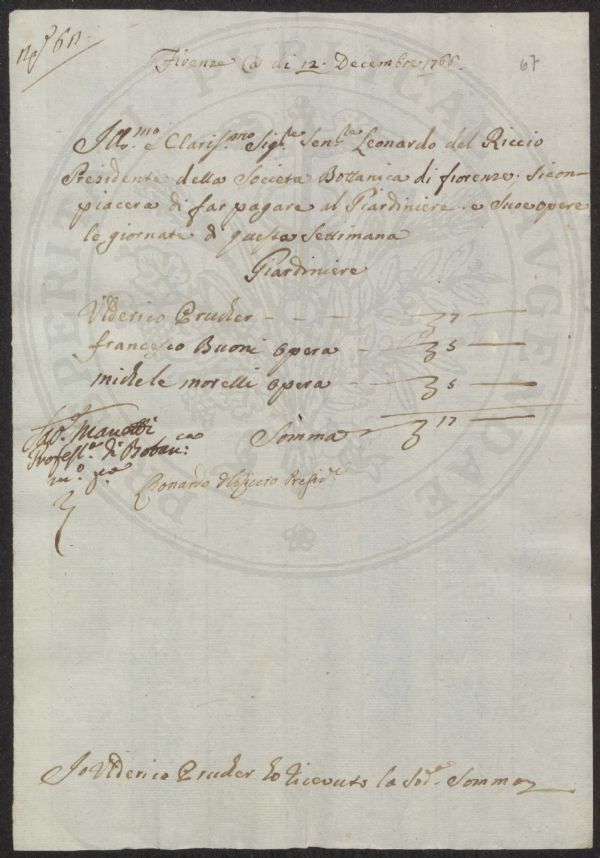 N.º 60
Firenze @ di 12. Decembre 1766
67
Ill.mo e Claris.mo Sig.re Sen.re Leonardo del Riccio
Presidente della Societa Bottanica di fiorenze. si com-
piacera di far pagare al Giardiniere. e Sue opere
le giornate di questa Settimana
Giardiniere
Uldericо Prucker - - - - 7 —
francesco Buoni opera - 5 —
michele morelli opera - 5 —
Somma 17 —
Manetti
Profess.e di Botan.ca
m.o p.a
Leonardo del Riccio Presid.e
Io Ulderico Prucker ho riceuuto la Sod.a Somma